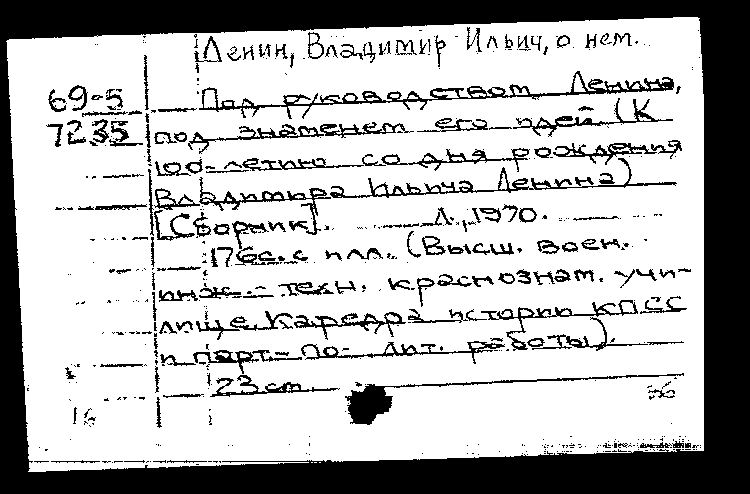 Ленин, Владимир Ильич, о нем.
69-5 Под руководством Ленина,
7235 под знаменем его идей. (К
100-летию со дня рождения
Владимира Ильича Ленина)
[Сборник]. Л., 1970.
176с. с илл. (Высш. воен.
инж.-техн. краснознам. учи-
лище. Кафедра истории КПСС
и парт.-по- лит. работы).
23 см.
16 56